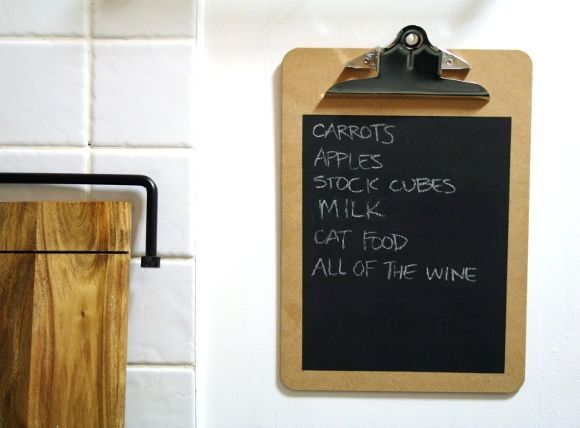 CARROTS
APPLES
STOCK CUBES
MILK
CAT FOOD
ALL OF THE WINE